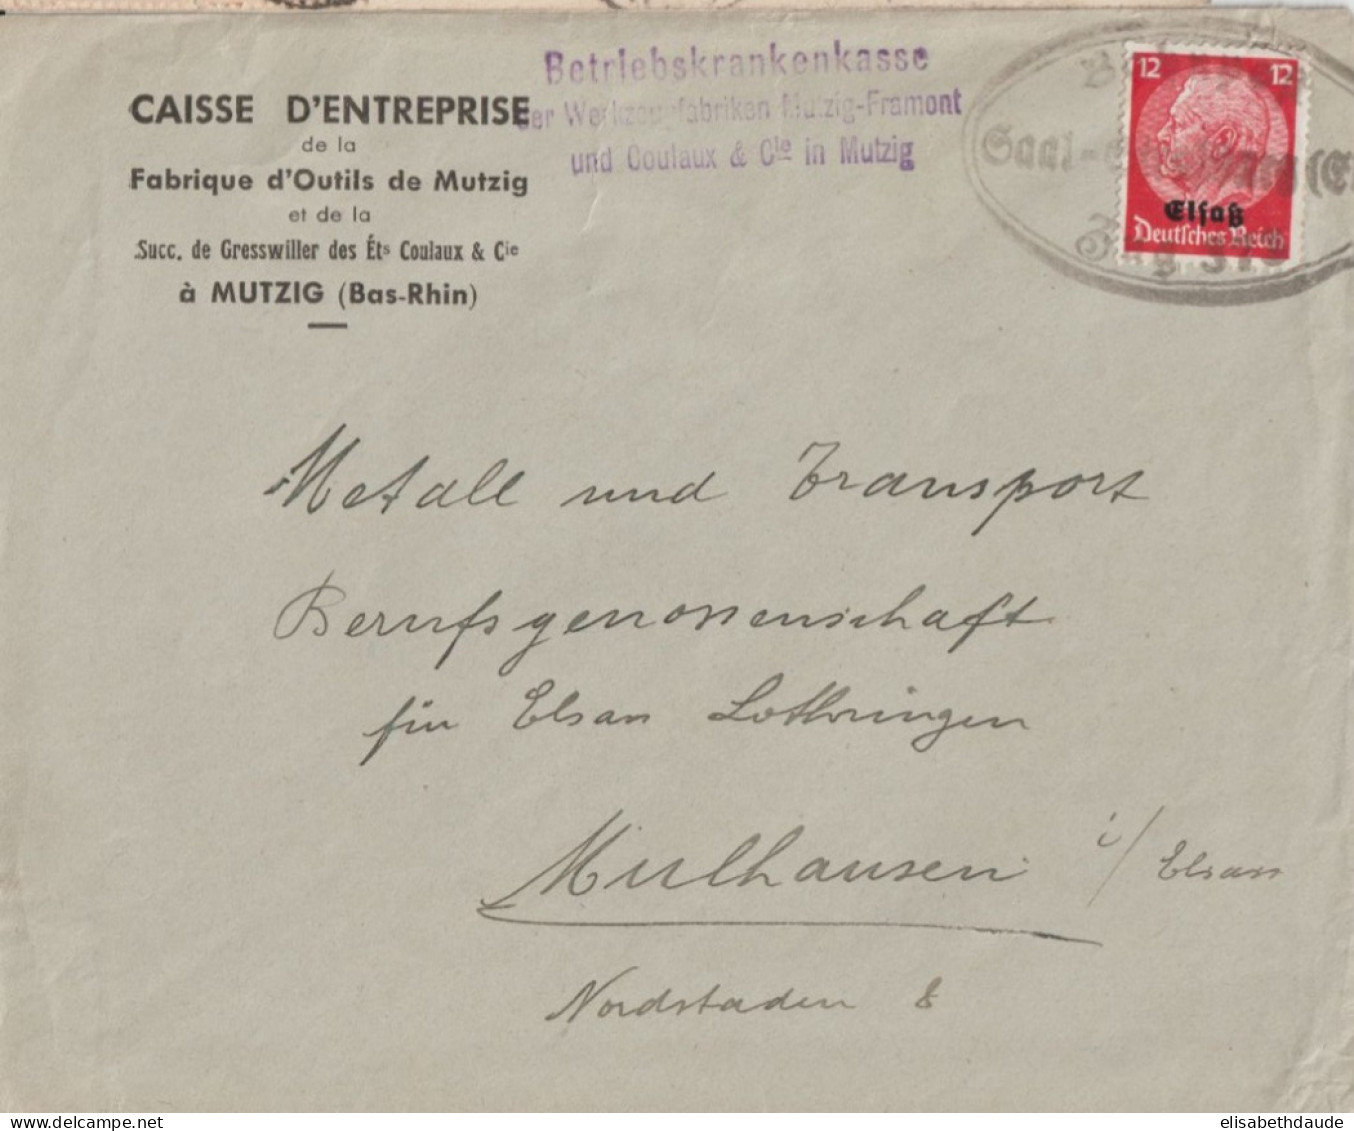 CAISSE D'ENTREPRISE
de la
Fabrique d'Outils de Mutzig
et de la
Succ. de Gresswiller des Éts Coulaux & Cie
à MUTZIG (Bas-Rhin)
Betriebskrankenkasse
der Werkzeugfabriken Mutzig-Framont
und Coulaux & Cie in Mutzig
12 12
Elsaß
Deutsches Reich
Saal-
Zug
Metall und Transport
Berufsgenossenschaft
für Elsass Lothringen
Mülhausen i/ Elsass
Nordstaden 8
elisabethdaude